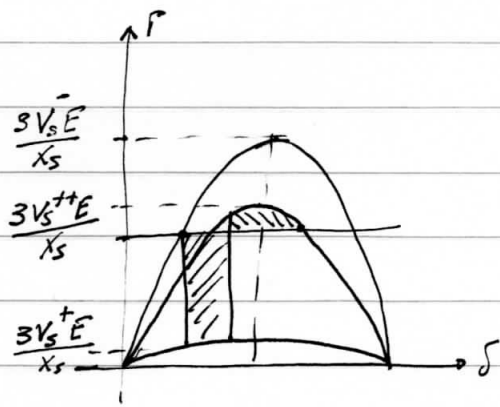 P
3V_s^- E / X_s
3V_s^{++} E / X_s
3V_s^+ E / X_s
δ